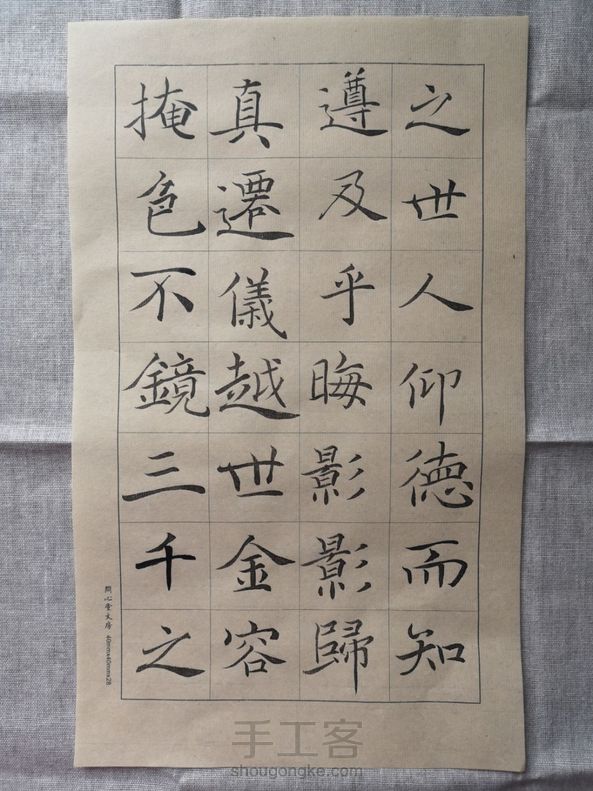 之世人仰德而知
遵及乎晦影影歸
真遷儀越世金容
掩色不鏡三千之
問心堂文房 40mmx40mmx28
手工客
shougongke.com